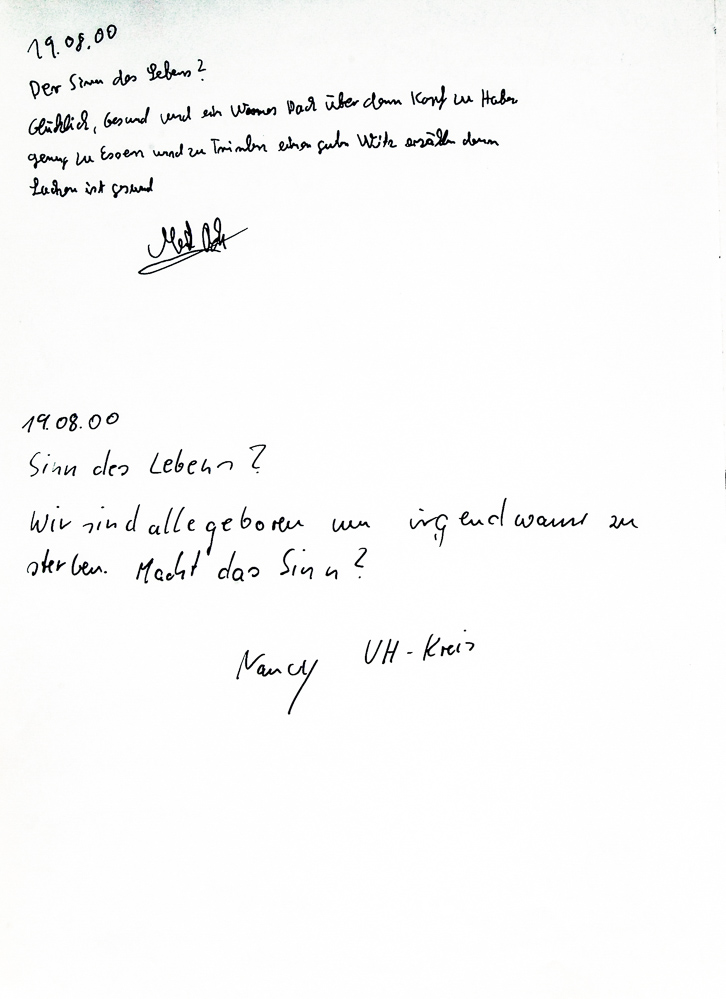 19.08.00
Der Sinn des Lebens?
Glücklich, Gesund und ein Warmes Dach über dem Kopf zu Haben
genug zu Essen und zu Trinken einen guten Witz erzählen denn
Lachen ist gesund
19.08.00
Sinn des Lebens?
Wir sind alle geboren um irgendwann zu
sterben. Macht das Sinn?
Nancy UH-Kreis